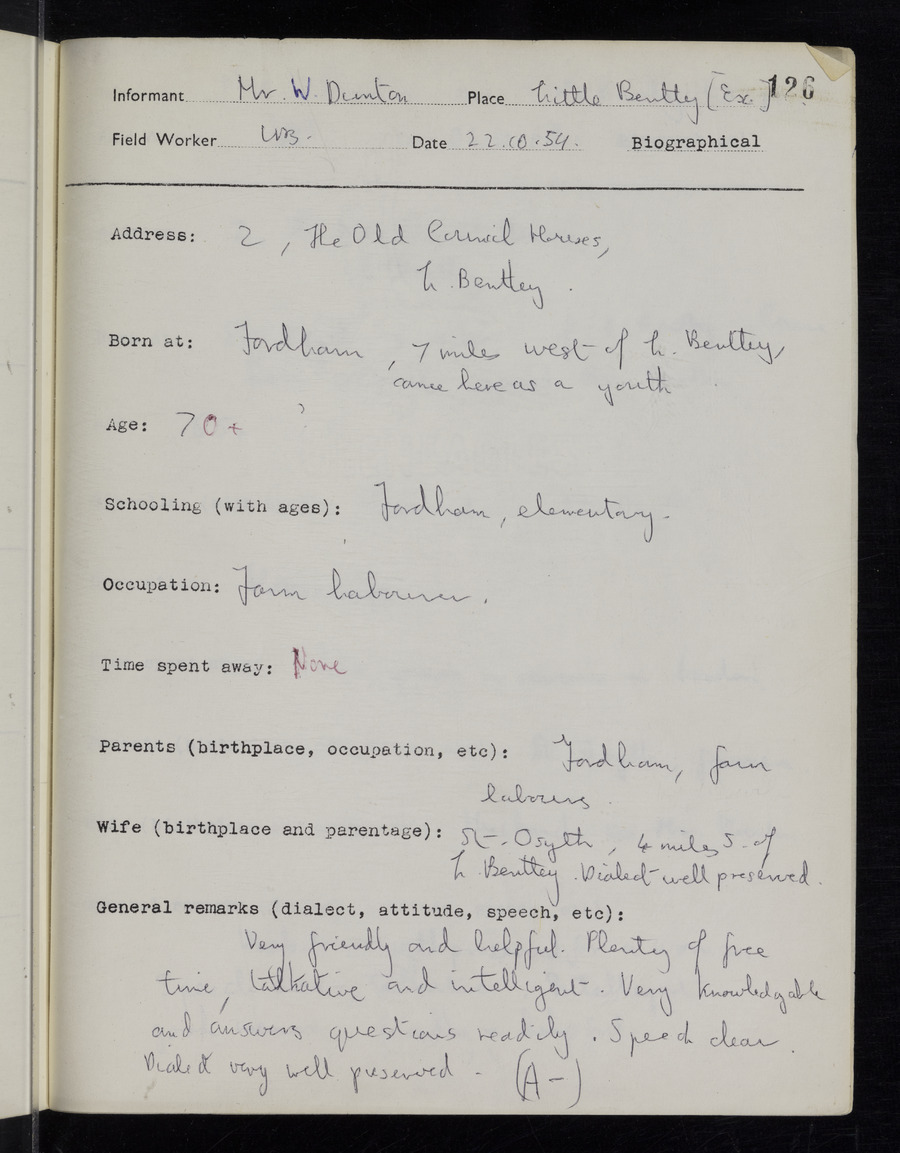 126
Informant Mr. W. Dunton Place Little Bentley [Ex.]
Field Worker WB. Date 22.10.54. Biographical
Address: 2, The Old Council Houses,
L. Bentley.
Born at: Fordham, 7 miles west of L. Bentley,
came here as a youth.
Age: 70+
Schooling (with ages): Fordham, elementary.
Occupation: Farm labourer.
Time spent away: None
Parents (birthplace, occupation, etc): Fordham, farm
labourers.
Wife (birthplace and parentage): St. Osyth, 4 miles S. of
L. Bentley. Dialect well preserved.
General remarks (dialect, attitude, speech, etc):
Very friendly and helpful. Plenty of free
time, talkative and intelligent. Very knowledgable
and answers questions readily. Speech clear.
Dialect very well preserved. (A-)